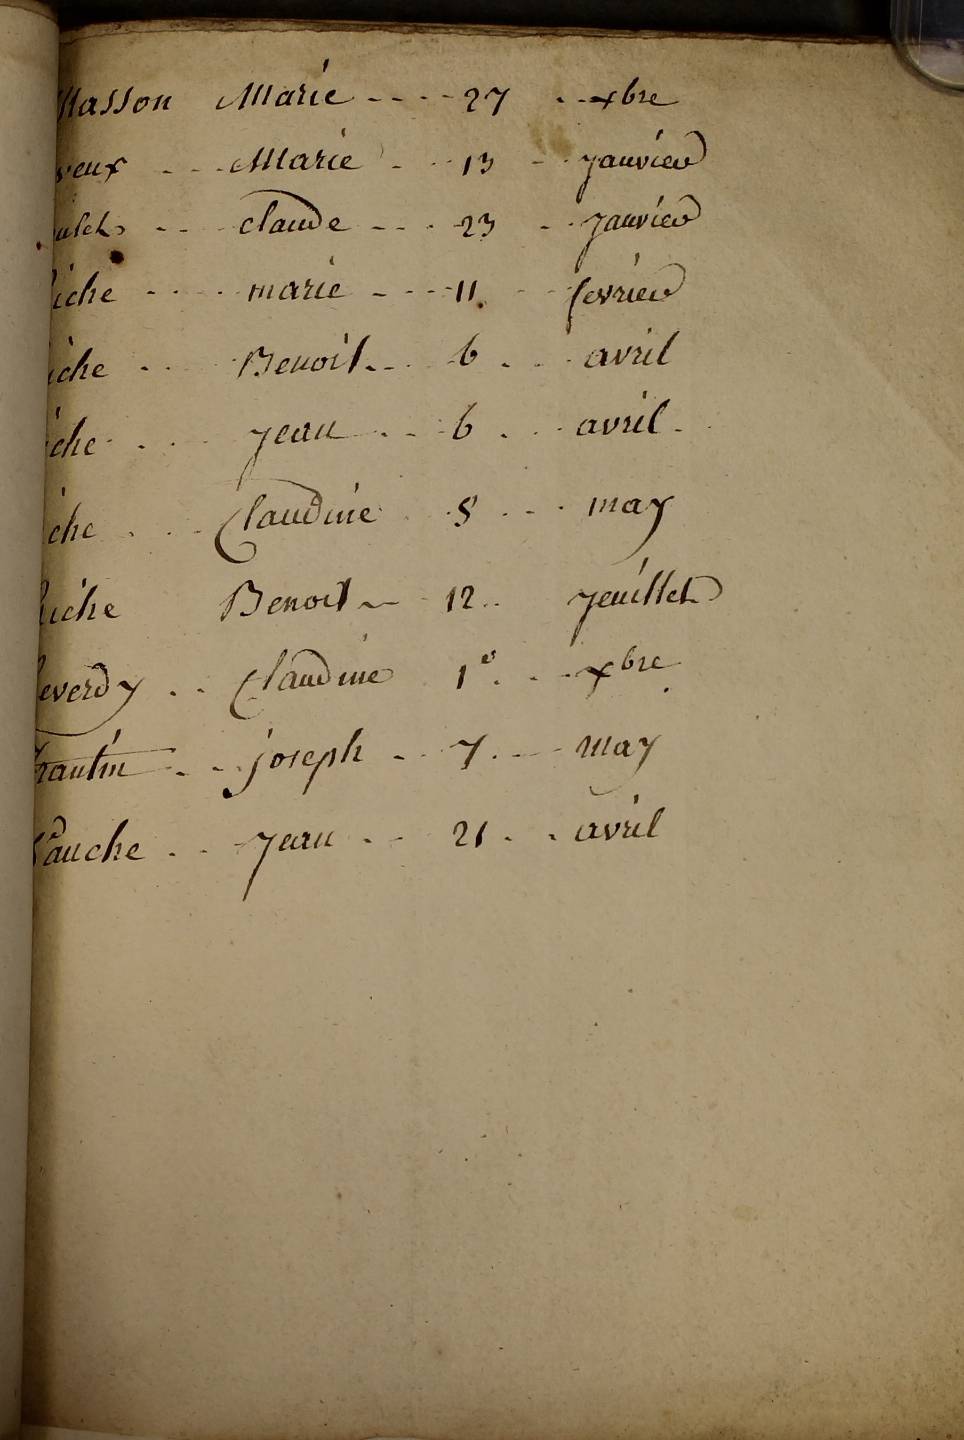 Masson Marie - - - - 27 - - xbre
veux - - - Marie - - - 13 - - janvier
ulet - - - claude - - - 23 - - janvier
iche - - - - marie - - - - 11. - - fevrier
iche - - - Benoit - - - 6 - - - avril
iche - - - - jean - - - 6 - - - avril -
iche - - - Claudine - - 8 - - - may
Riche Benoit - - 12 - - jeuillet
Reverdy - - Claudine 1er. - - - xbre.
Trantin - - - joseph - - 7. - - - may
Vauche - - - jean - - - 21 - - - avril